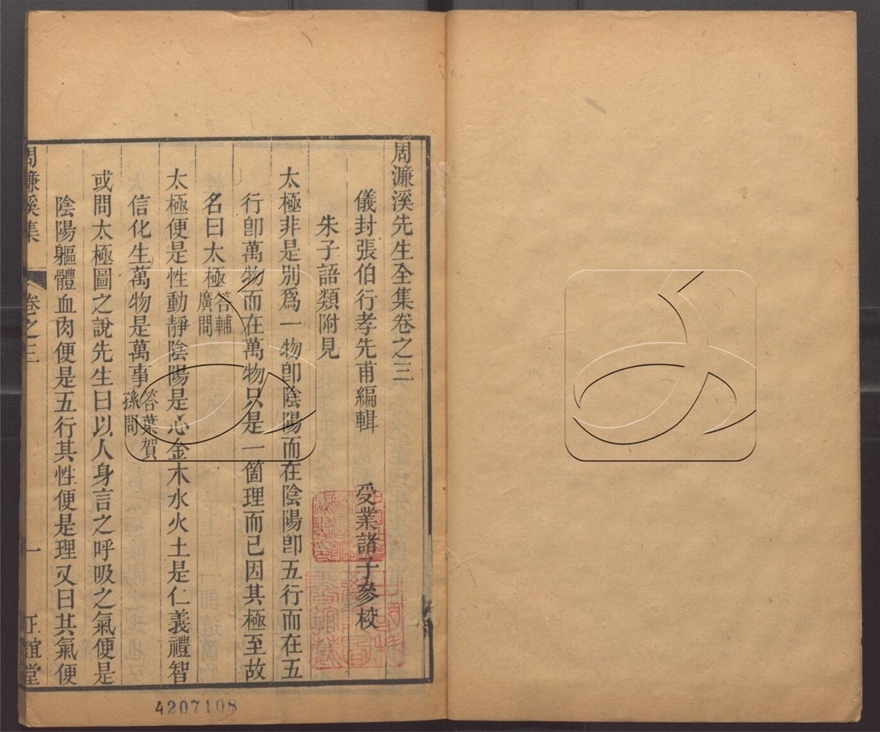 周濂溪先生全集卷之三
儀封張伯行孝先甫編輯 受業諸子參校
朱子語類附見
太極非是別爲一物卽陰陽而在陰陽卽五行而在五
行卽萬物而在萬物只是一箇理而已因其極至故
名曰太極答輔廣問
太極便是性動靜陰陽是心金木水火土是仁義禮智
信化生萬物是萬事答葉賀孫問
或問太極圖之說先生曰以人身言之呼吸之氣便是
陰陽軀體血肉便是五行其性便是理又曰其氣便
周濂溪集 卷之三 一 正誼堂
4207108